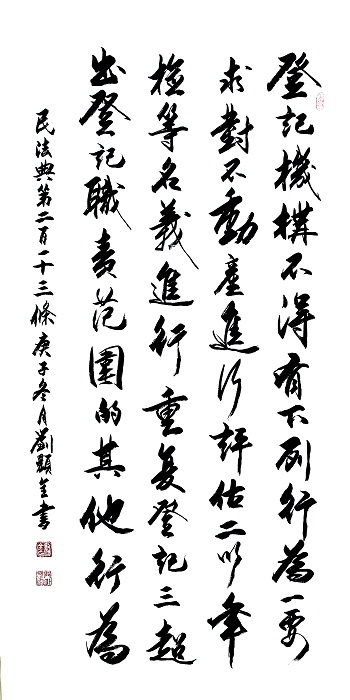 登記機構不得有下列行為一要
求對不動產進行評估二以年
檢等名義進行重复登記三超
出登記職責范圍的其他行為
民法典第二百一十三條庚子冬月劉顯金書